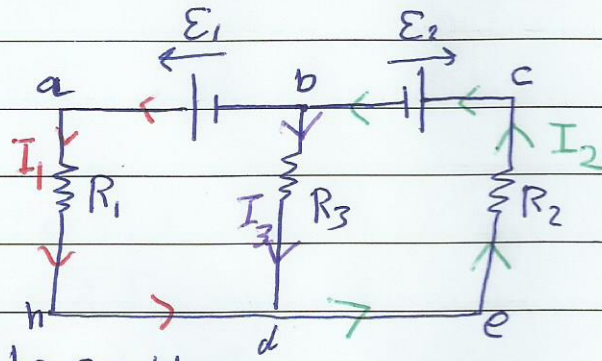 ε₁ ε₂
a b c
I₁ R₁ I₃ R₃ R₂ I₂
h d e